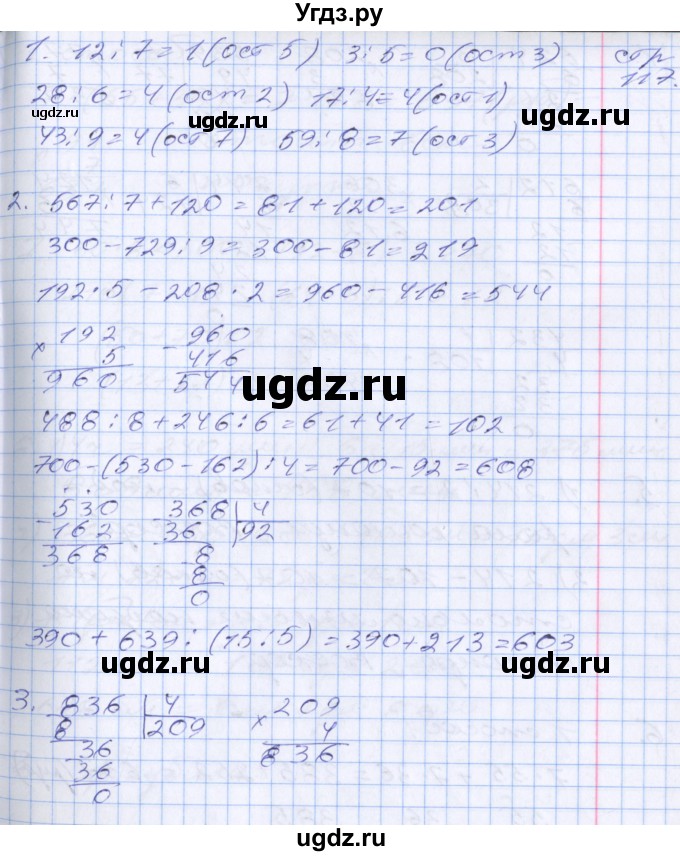 Угдз.ру
1. 12 : 7 = 1 (ост 5) 3 : 5 = 0 (ост 3) стр
117.
28 : 6 = 4 (ост 2) 17 : 4 = 4 (ост 1)
43 : 9 = 4 (ост 7) 59 : 8 = 7 (ост 3)
2. 567 : 7 + 120 = 81 + 120 = 201
300 - 729 : 9 = 300 - 81 = 219
192 · 5 - 208 · 2 = 960 - 416 = 544
× 192 - 960
5 416
960 544
ugdz.ru ugdz.ru
488 : 8 + 246 : 6 = 61 + 41 = 102
700 - (530 - 162) : 4 = 700 - 92 = 608
- 530 - 368 | 4
162 36 | 92
368 8
8
0
ugdz.ru
390 + 639 : (15 : 5) = 390 + 213 = 603
ugdz.ru ugdz.ru
3. - 836 | 4 × 209
8 | 209 4
36 836
36
0
ugdz.ru
ugdz.ru